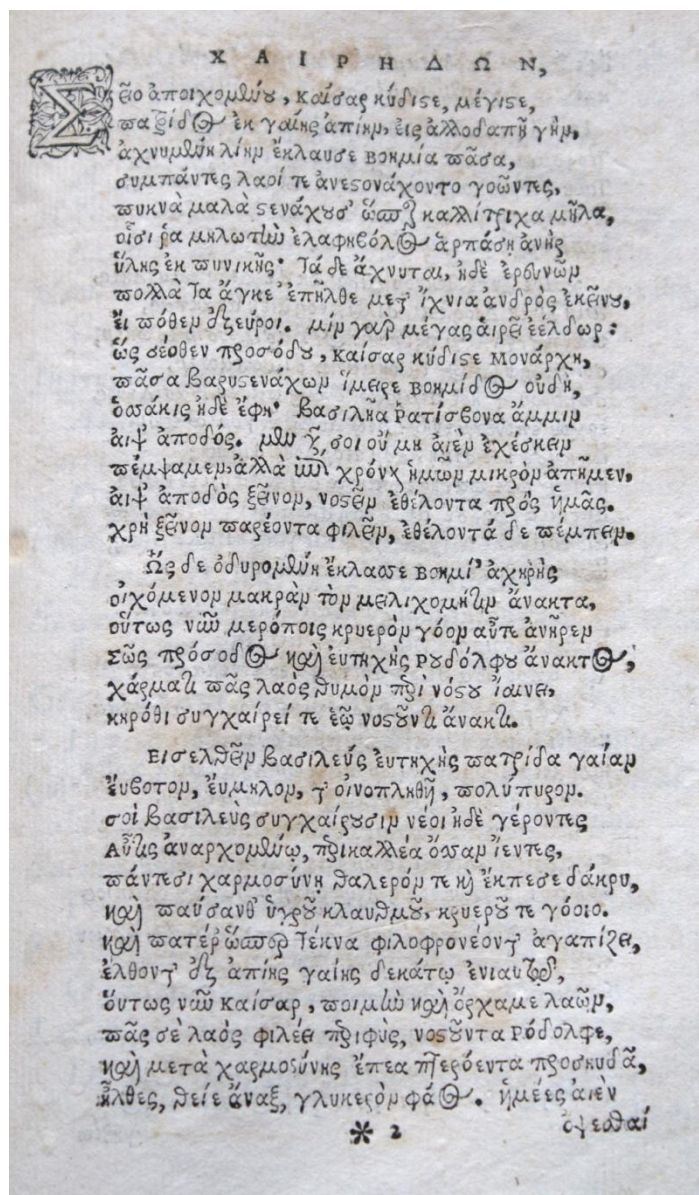 ΧΑΙΡΗΔΩΝ,
Σεῖο ἀποιχομένου, Καῖσαρ κύδιστε, μέγιστε,
πατρίδος ἐκ γαίης ἀπίην, εἰς ἀλλοδαπὴ γῆν,
ἀχνυμένη λίην ἔκλαυσε βοημία πᾶσα,
συμπάντες λαοί τε ἀνεστονάχοντο γοῶντες,
πυκνὰ μαλὰ στενάχουσ' ὥσπερ καλλίτριχα μῆλα,
οἷσι ῥα μηλωτὴν ἐλαφηβόλος ἁρπάσῃ ἀνὴρ
ὕλης ἐκ πυνικῆς· τά δε ἄχνυται, ἠδὲ ἐρευνῶν
πολλὰ τα ἄγκε' ἐπῆλθε μετ' ἴχνια ἀνδρὸς ἐκείνου,
εἴ πόθεν ἐξεύροι. μὶν γαὸ μέγας αἱρεῖ ἐέλδωρ:
ὥς σέοθεν προσόδου, Καῖσαρ κύδιστε Μονάρχη,
πᾶσα βαρυστενάχων ἵμειρε βοημίδος οὐδη,
ὁσσάκις ἠδὲ ἔφη· βασιλῆα Ρατίσβονα ἄμμιν
αἰψ' ἀποδός. μὲν σοι οὔ μη αἰὲν ἐχέσκειν
πέμψαμεν, ἀλλὰ ἐπὶ χρόνον ἡμῶν μικρὸν ἀπῆμεν.
αἰψ' ἀποδὸς ξεῖνον, νοστεῖν ἐθέλοντα πρὸς ἡμᾶς.
χρὴ ξεῖνον παρέοντα φιλεῖν, ἐθέλοντά δε πέμπειν.
Ὣς δε ὀδυρομένη ἔκλαυσε βοημί' ἀχηρὴς
οἰχόμενον μακρὰν τὸν μειλιχομήτην ἄνακτα,
οὕτως νῦν μερόποις κρυερὸν γόον αὖτε ἀνῆρεν
Σῶς πρόσοδος καὶ ἐυτηχὴς Ρυδόλφου ἄνακτος,
χάρματι πᾶς λαὸς θυμὸν περὶ νόστου ἰαίνει,
κηρόθι συγχαίρεί τε ἑῷ νοστοῦντι ἄνακτι.
Εισελθεῖν βασιλεύς ἐυτηχὴς πατρίδα γαῖαν
ἔυβοτον, ἔυμηλον, τ' οἰνοπληθῆ, πολύπυρον.
σοὶ βασιλεὺς συγχαίρουσιν νέοι ἠδὲ γέροντες
Αὖτις ἀναρχομένῳ, περικαλλέα ὄσσαν ἵεντες,
πάντεσι χαρμοσύνῃ θαλερόν τε καὶ ἔκπεσε δάκρυ,
καὶ παύσανθ' ὑγροῦ κλαυθμοῦ, κρυεροῦ τε γόοιο.
καὶ πατέρ' ὥσπερ τέκνα φιλοφρονέοντ' ἀγαπίζει,
ἐλθοντ' ἐξ ἀπίης γαίης δεκάτῳ ἐνιαυτῷ,
ὅυτως νῦν Καῖσαρ, ποιμὴν καὶ ὄρχαμε λαῶν,
πᾶς σὲ λαὸς φιλέει περιφὺς, νοστοῦντα Ρόδολφε,
καὶ μετὰ χαρμοσύνης ἔπεα πτερόεντα προσηυδᾶ,
ἦλθες, θεῖε ἄναξ, γλυκερὸν φάος. ἡμέες αἰὲν
* 2 ὀψεσθαί